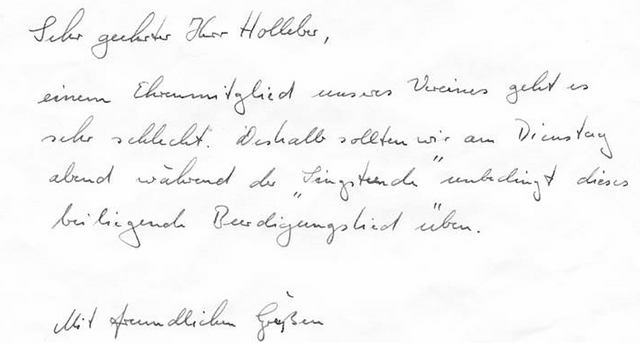 Sehr geehrter Herr Holleber,
einem Ehrenmitglied unseres Vereines geht es
sehr schlecht. Deshalb sollten wir am Dienstag
abend während der „Singstunde" unbedingt dieses
beiliegende Beerdigungslied üben.
Mit freundlichen Grüßen